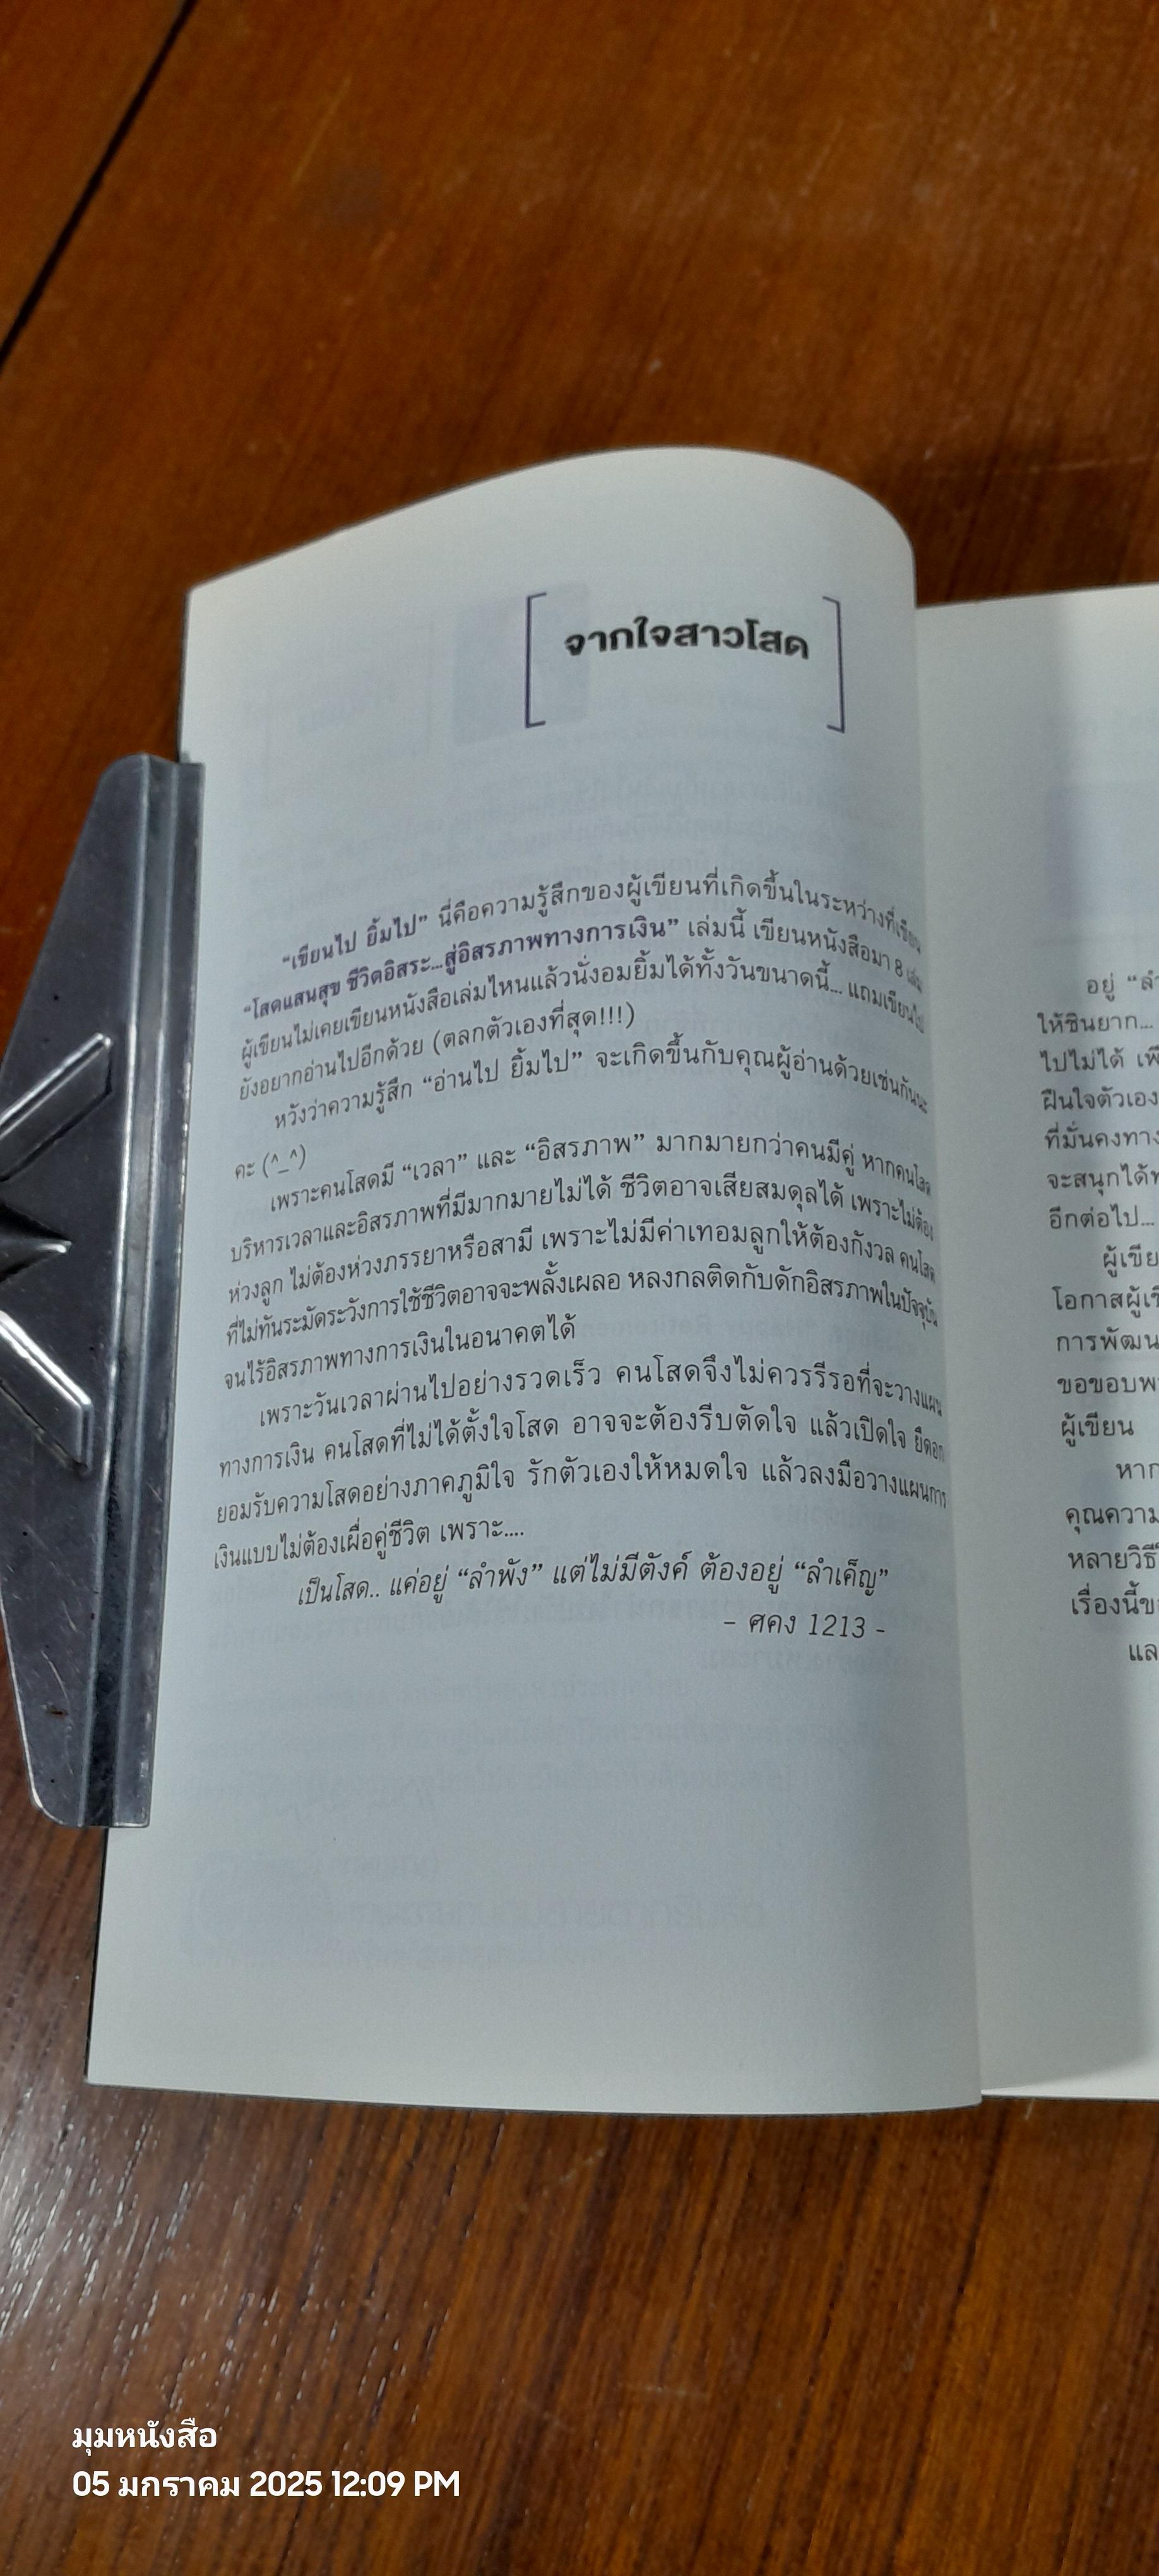 จากใจสาวโสด
“เขียนไป ยิ้มไป” นี่คือความรู้สึกของผู้เขียนที่เกิดขึ้นในระหว่างที่เขียน
“โสดแสนสุข ชีวิตอิสระ...สู่อิสรภาพทางการเงิน” เล่มนี้ เขียนหนังสือมา 8 เล่ม
ผู้เขียนไม่เคยเขียนหนังสือเล่มไหนแล้วนั่งอมยิ้มได้ทั้งวันขนาดนี้... แถมเขียนไป
ยังอยากอ่านไปอีกด้วย (ตลกตัวเองที่สุด!!!)
หวังว่าความรู้สึก “อ่านไป ยิ้มไป” จะเกิดขึ้นกับคุณผู้อ่านด้วยเช่นกันนะ
คะ (^_^)
เพราะคนโสดมี “เวลา” และ “อิสรภาพ” มากมายกว่าคนมีคู่ หากคนโสด
บริหารเวลาและอิสรภาพที่มีมากมายไม่ได้ ชีวิตอาจเสียสมดุลได้ เพราะไม่ต้อง
ห่วงลูก ไม่ต้องห่วงภรรยาหรือสามี เพราะไม่มีค่าเทอมลูกให้ต้องกังวล คนโสด
ที่ไม่ทันระมัดระวังการใช้ชีวิตอาจจะพลั้งเผลอ หลงกลติดกับดักอิสรภาพในปัจจุบัน
จนไร้อิสรภาพทางการเงินในอนาคตได้
เพราะวันเวลาผ่านไปอย่างรวดเร็ว คนโสดจึงไม่ควรรีรอที่จะวางแผน
ทางการเงิน คนโสดที่ไม่ได้ตั้งใจโสด อาจจะต้องรีบตัดใจ แล้วเปิดใจ ยืดอก
ยอมรับความโสดอย่างภาคภูมิใจ รักตัวเองให้หมดใจ แล้วลงมือวางแผนการ
เงินแบบไม่ต้องเผื่อคู่ชีวิต เพราะ....
เป็นโสด.. แค่อยู่ “ลำพัง” แต่ไม่มีตังค์ ต้องอยู่ “ลำเค็ญ”
– ศคง 1213 -
อยู่
ให้ชินยาก...
ไปไม่ได้
ฝืนใจตัวเอง
ที่มั่นคงทาง
จะสนุกได้
อีกต่อไป...
ผู้เขีย
โอกาสผู้เขี
การพัฒน
ขอขอบพ
ผู้เขียน
หาก
คุณความ
หลายวิธี
เรื่องนี้ข
แล
มุมหนังสือ
05 มกราคม 2025 12:09 PM